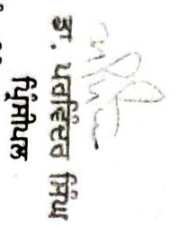 ਡਾ. ਪਰਵਿੰਦਰ ਸਿੰਘ
ਪ੍ਰਿੰਸੀਪਲ